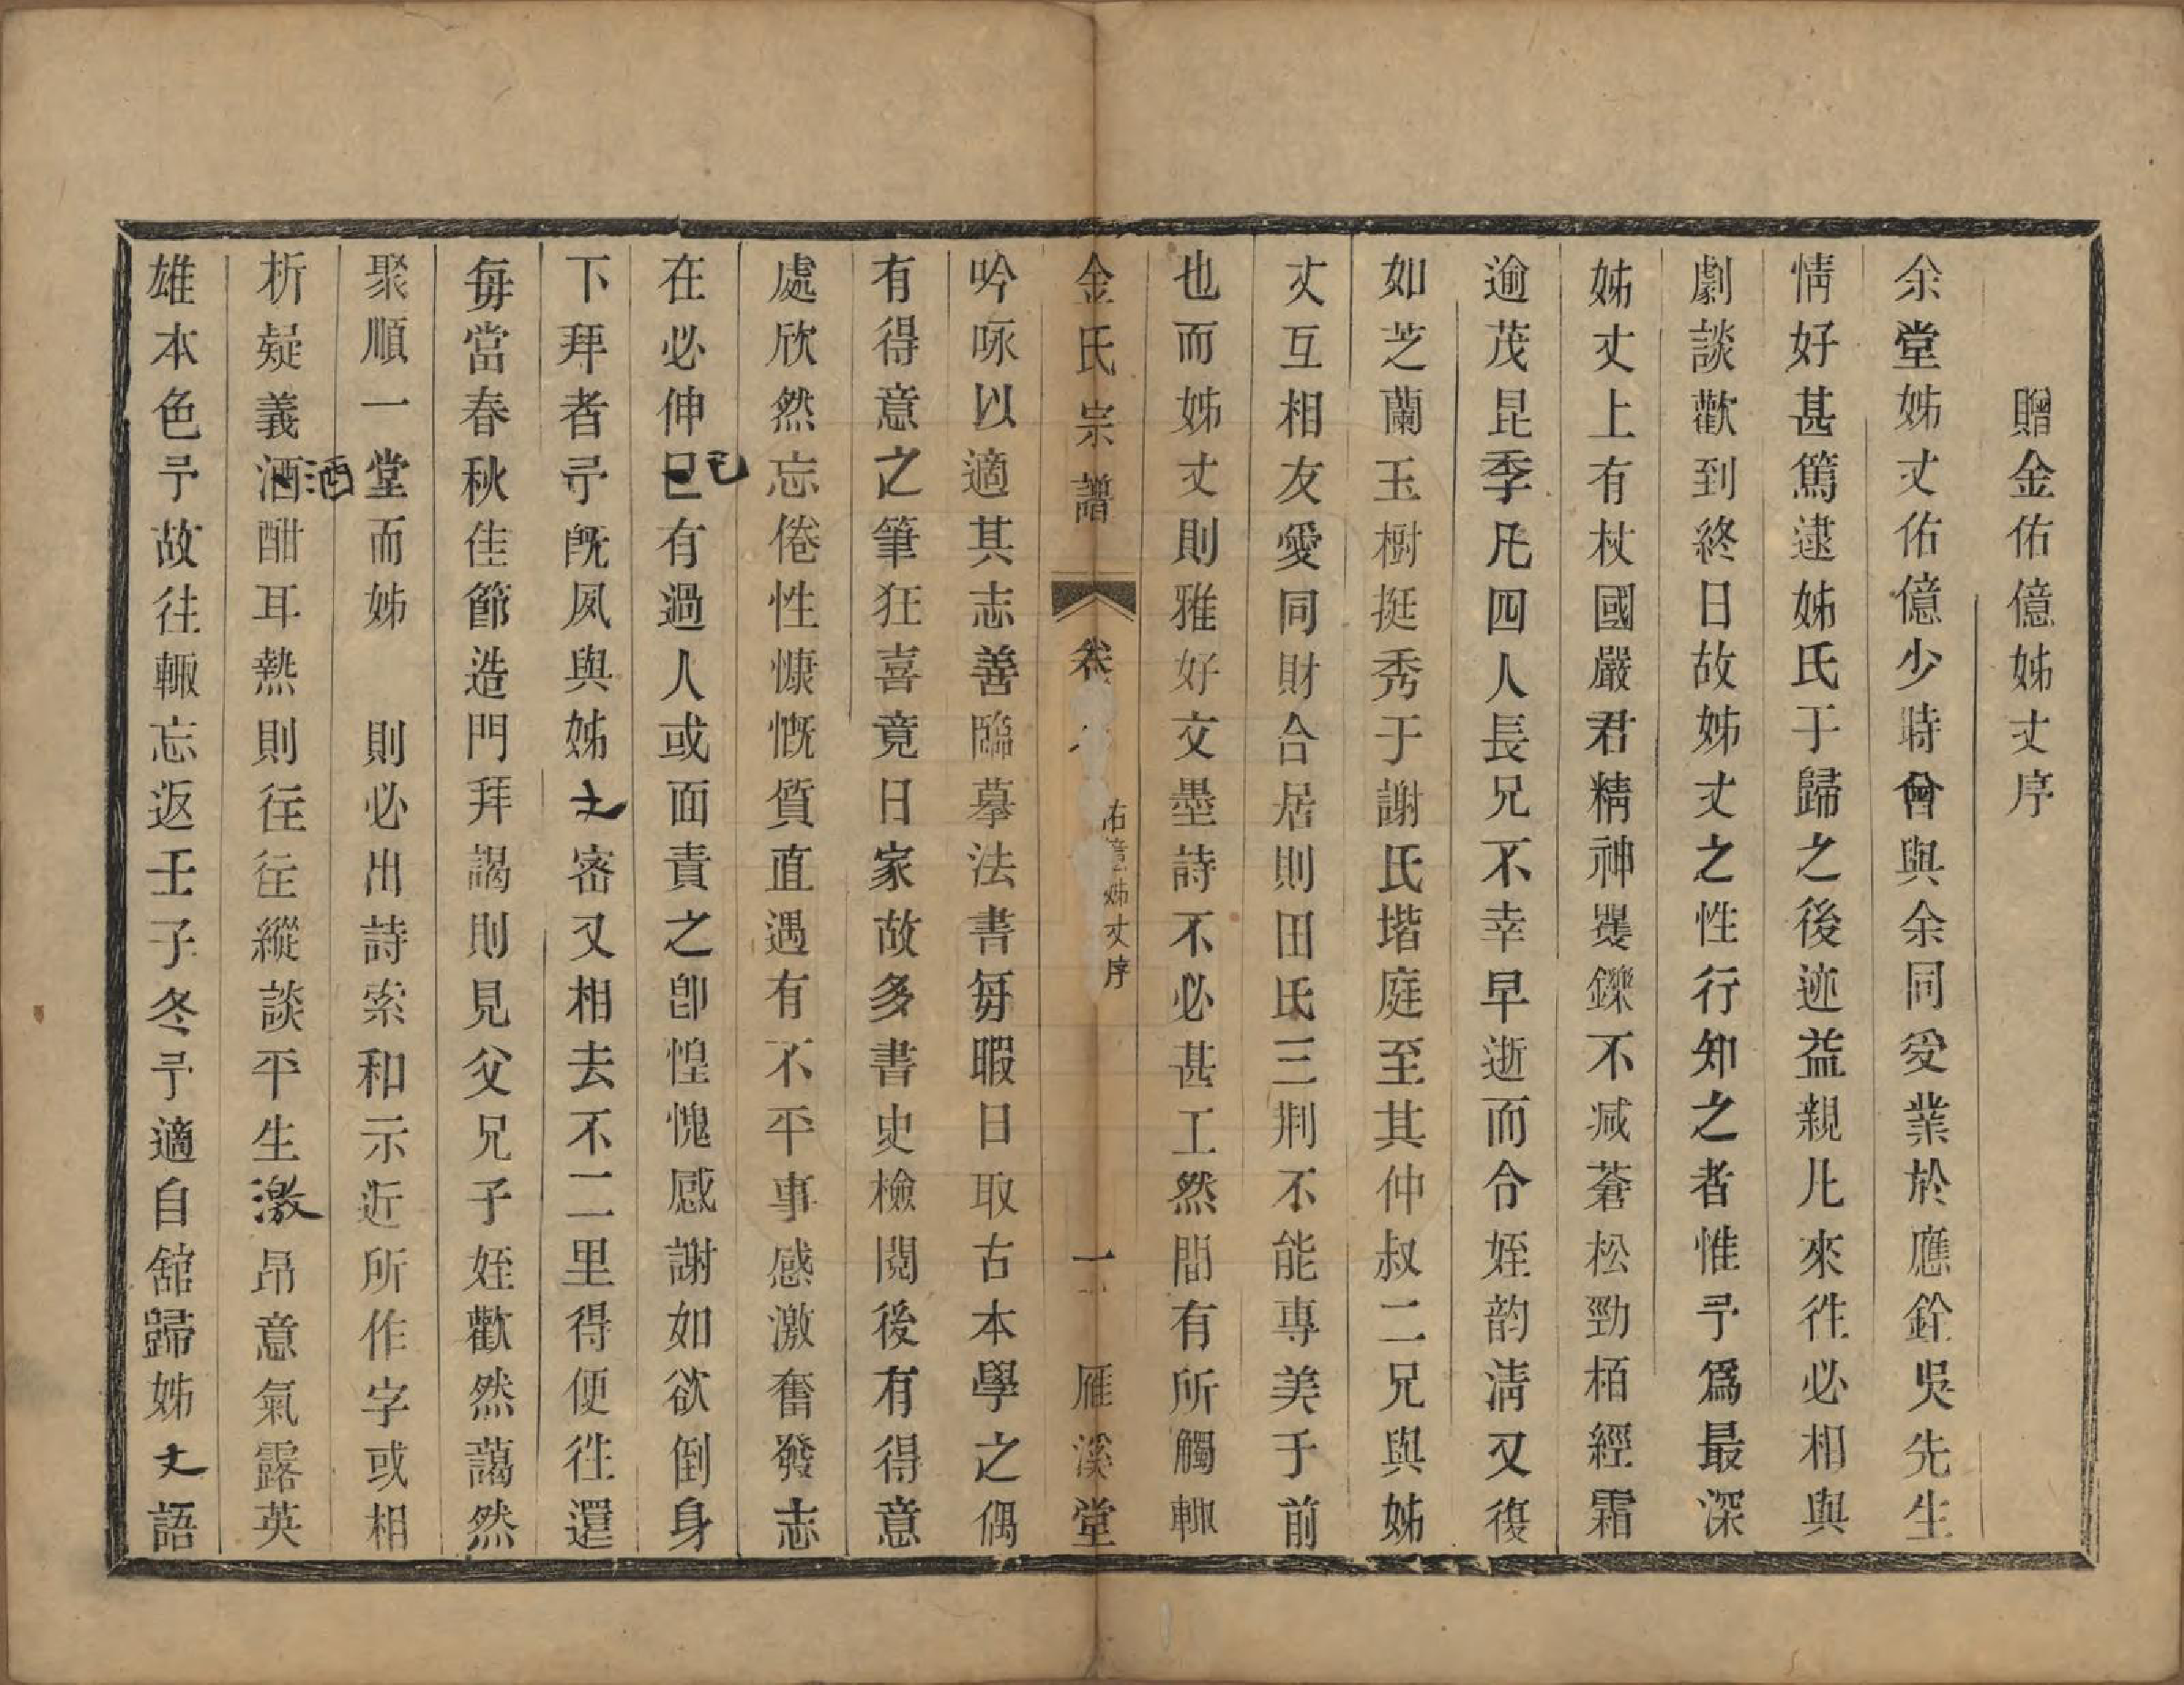 贈金佑億姊丈序
余堂姊丈佑億少時曾與余同受業於應銓吳先生
情好甚篤逮姊氏于歸之後迹益親凡來徃必相與
劇談歡到終日故姊丈之性行知之者惟予爲最深
姊丈上有杖國嚴君精神矍鑠不减蒼松勁栢經霜
逾茂昆季凡四人長兄不幸早逝而令姪韵清又復
如芝蘭玉樹挺秀于謝氏堦庭至其仲叔二兄與姊
丈互相友愛同財合居則田氏三荆不能專美于前
也而姊丈則雅好文墨詩不必甚工然間有所觸輙
金氏宗譜 卷 佑億姊丈序 一 雁溪堂
吟咏以適其志善臨摹法書每暇日取古本學之偶
有得意之筆狂喜竟日家故多書史檢閱後有得意
處欣然忘倦性慷慨質直遇有不平事感激奮發志
在必伸已己有過人或面責之卽惶愧感謝如欲倒身
下拜者予旣夙與姊丈密又相去不二里得便徃還
每當春秋佳節造門拜謁則見父兄子姪歡然藹然
聚順一堂而姊 則必出詩索和示近所作字或相
析疑義酒酒酣耳熱則徃徃縱談平生激昂意氣露英
雄本色予故徃輙忘返壬子冬予適自舘歸姊丈語